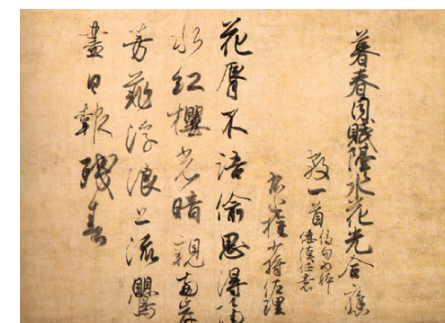 暮春同賦隔水花光合應
教一首
権少将佐理
花脣不語偸思得隔
水紅櫻光暗親両岸
芳菲浮浪上流鶯
盡日報残春